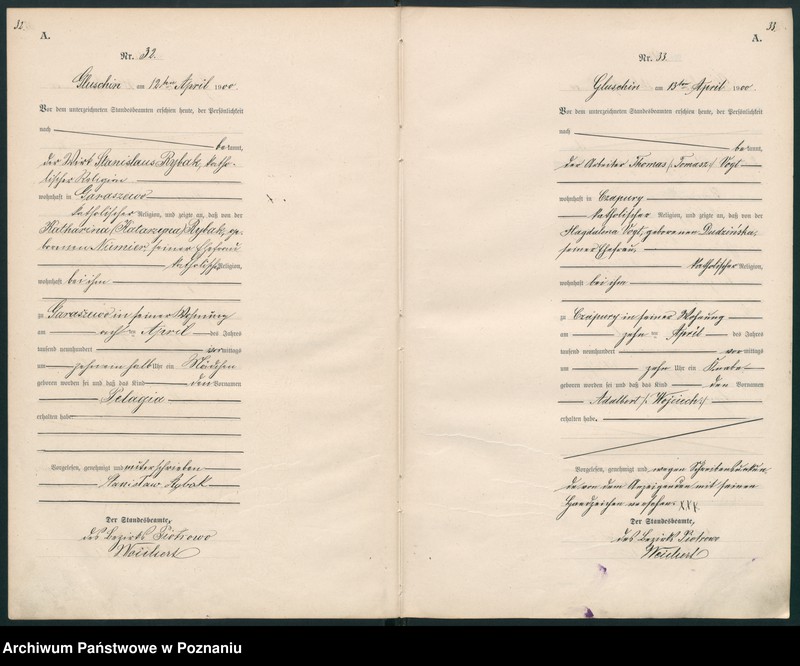 32.
A.
Nr. 32.
Gluschin am 12ten April 1900
Vor dem unterzeichneten Standesbeamten erschien heute, der Persönlichkeit
nach
bekannt,
der Wirt Stanislaus Rybak, katho-
lischer Religion
wohnhaft in Garaszewo
katholischer Religion, und zeigte an, daß von der
Katharina (Katarzyna) Rybak, ge-
borenen Niemier, seiner Ehefrau
katholischer Religion,
wohnhaft bei ihm
zu Garaszewo in seiner Wohnung
am achten April des Jahres
tausend neunhundert vormittags
um zehneinhalb Uhr ein Mädchen
geboren worden sei und daß das Kind den Vornamen
Pelagia
erhalten habe.
Vorgelesen, genehmigt und unterschrieben
Stanisław Rybak
Der Standesbeamte,
des Bezirks Piotrowo
33.
A.
Nr. 33.
Gluschin am 13ten April 1900.
Vor dem unterzeichneten Standesbeamten erschien heute, der Persönlichkeit
nach
bekannt,
der Arbeiter Thomas (Tomasz) Vogt
wohnhaft in Czapury
katholischer Religion, und zeigte an, daß von der
Magdalena Vogt, geborenen Dudzińska,
seiner Ehefrau,
katholischer Religion,
wohnhaft bei ihm
zu Czapury in seiner Wohnung
am zehnten April des Jahres
tausend neunhundert vormittags
um zehn Uhr ein Knabe
geboren worden sei und daß das Kind den Vornamen
Adalbert (Wojciech)
erhalten habe.
Vorgelesen, genehmigt und wegen Schreibensunkun-
de von dem Anzeigenden mit seinen
Handzeichen versehen XXX.
Der Standesbeamte,
des Bezirks Piotrowo
Archiwum Państwowe w Poznaniu